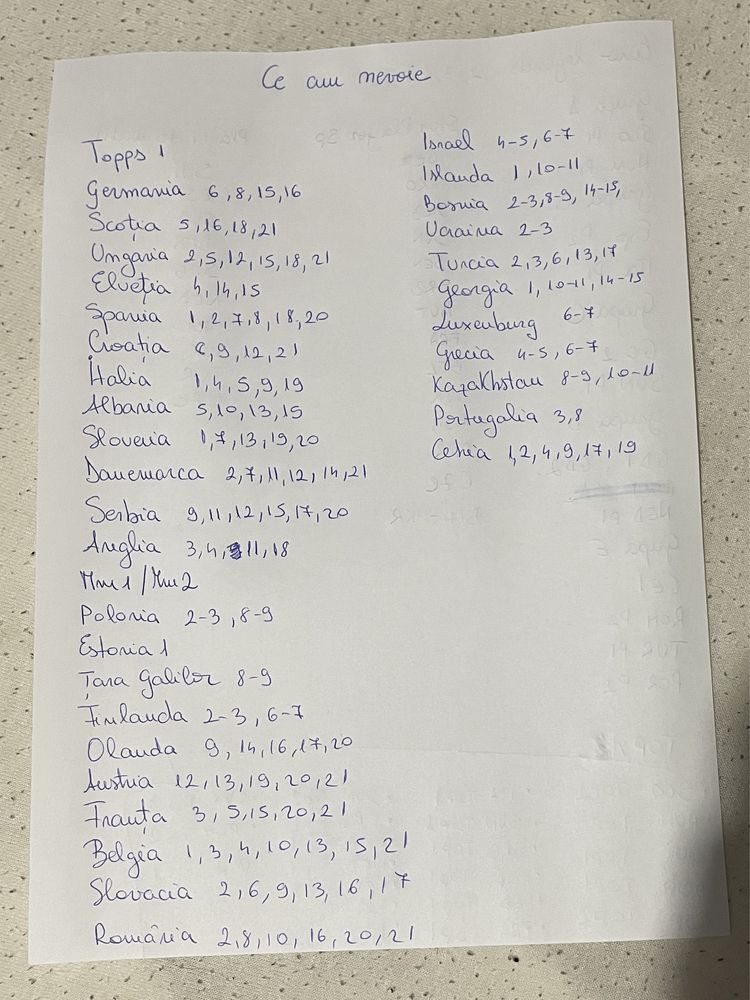 Ce am nevoie
Topps 1
Germania 6, 8, 15, 16
Scoția 5, 16, 18, 21
Ungaria 2, 5, 12, 15, 18, 21
Elveția 4, 14, 15
Spania 1, 2, 7, 8, 18, 20
Croația 6, 9, 12, 21
Italia 1, 4, 5, 9, 19
Albania 5, 10, 13, 15
Slovenia 1, 7, 13, 19, 20
Danemarca 2, 7, 11, 12, 14, 21
Serbia 9, 11, 12, 15, 17, 20
Anglia 3, 4, 11, 18
Mm 1 / Mm 2
Polonia 2-3, 8-9
Estonia 1
Țara Galilor 8-9
Finlanda 2-3, 6-7
Olanda 9, 14, 16, 17, 20
Austria 12, 13, 19, 20, 21
Franța 3, 5, 15, 20, 21
Belgia 1, 3, 4, 10, 13, 15, 21
Slovacia 2, 6, 9, 13, 16, 17
România 2, 8, 10, 16, 20, 21
Israel 4-5, 6-7
Islanda 1, 10-11
Bosnia 2-3, 8-9, 14-15,
Ucraina 2-3
Turcia 2, 3, 6, 13, 17
Georgia 1, 10-11, 14-15
Luxenburg 6-7
Grecia 4-5, 6-7
Kazakhstan 8-9, 10-11
Portugalia 3, 8
Cehia 1, 2, 4, 9, 17, 19